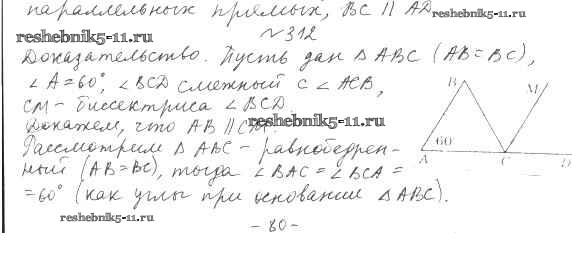 параллельных прямых, BC || AD
reshebnik5-11.ru
reshebnik5-11.ru
№312
Доказательство. Пусть дан △ ABC (AB = BC),
∠ A = 60°, ∠ BCD смежный с ∠ ACB,
CM – биссектриса ∠ BCD.
reshebnik5-11.ru
Докажем, что AB || CM.
reshebnik5-11.ru
Рассмотрим △ ABC – равнобедрен-
ный (AB = BC), тогда ∠ BAC = ∠ BCA =
= 60° (как углы при основании △ ABC).
B
M
60°
A
C
D
reshebnik5-11.ru
reshebnik5-11.ru
– 80 –